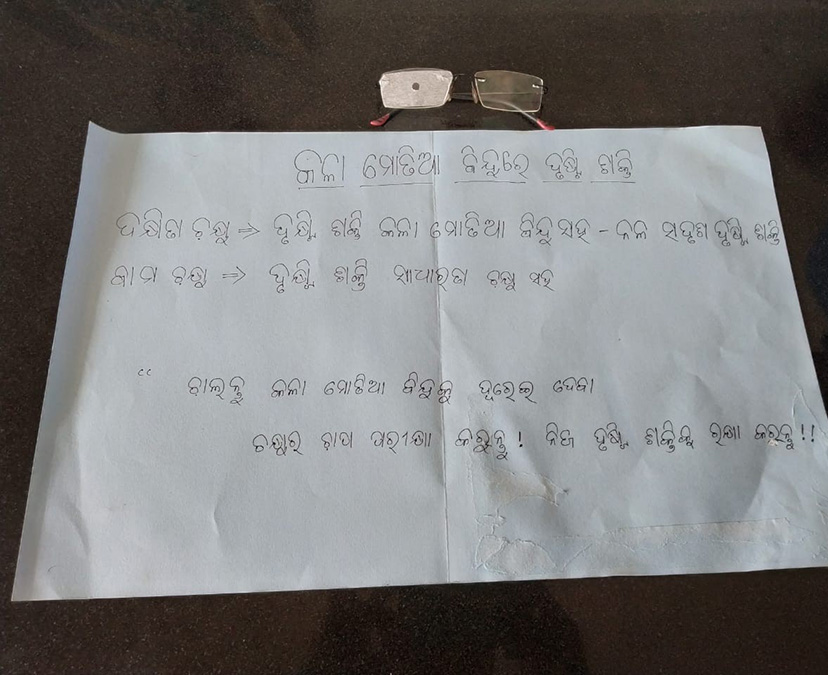 କଳା ମୋତିଆ ବିନ୍ଦୁରେ ଦୃଷ୍ଟି ଶକ୍ତି
ଦକ୍ଷିଣ ଚକ୍ଷୁ ⇒ ଦୃଷ୍ଟି ଶକ୍ତି କଳା ମୋତିଆ ବିନ୍ଦୁ ସହ - ନଳ ସଦୃଶ ଦୃଷ୍ଟି ଶକ୍ତି
ବାମ ଚକ୍ଷୁ ⇒ ଦୃଷ୍ଟି ଶକ୍ତି ସାଧାରଣ ଚକ୍ଷୁ ସହ
“ ଚାଲନ୍ତୁ କଳା ମୋତିଆ ବିନ୍ଦୁକୁ ଦୂରେଇ ଦେବା
ଚକ୍ଷୁର ଚାପ ପରୀକ୍ଷା କରୁନ୍ତୁ ! ନିଜ ଦୃଷ୍ଟି ଶକ୍ତିକୁ ରକ୍ଷା କରନ୍ତୁ !!